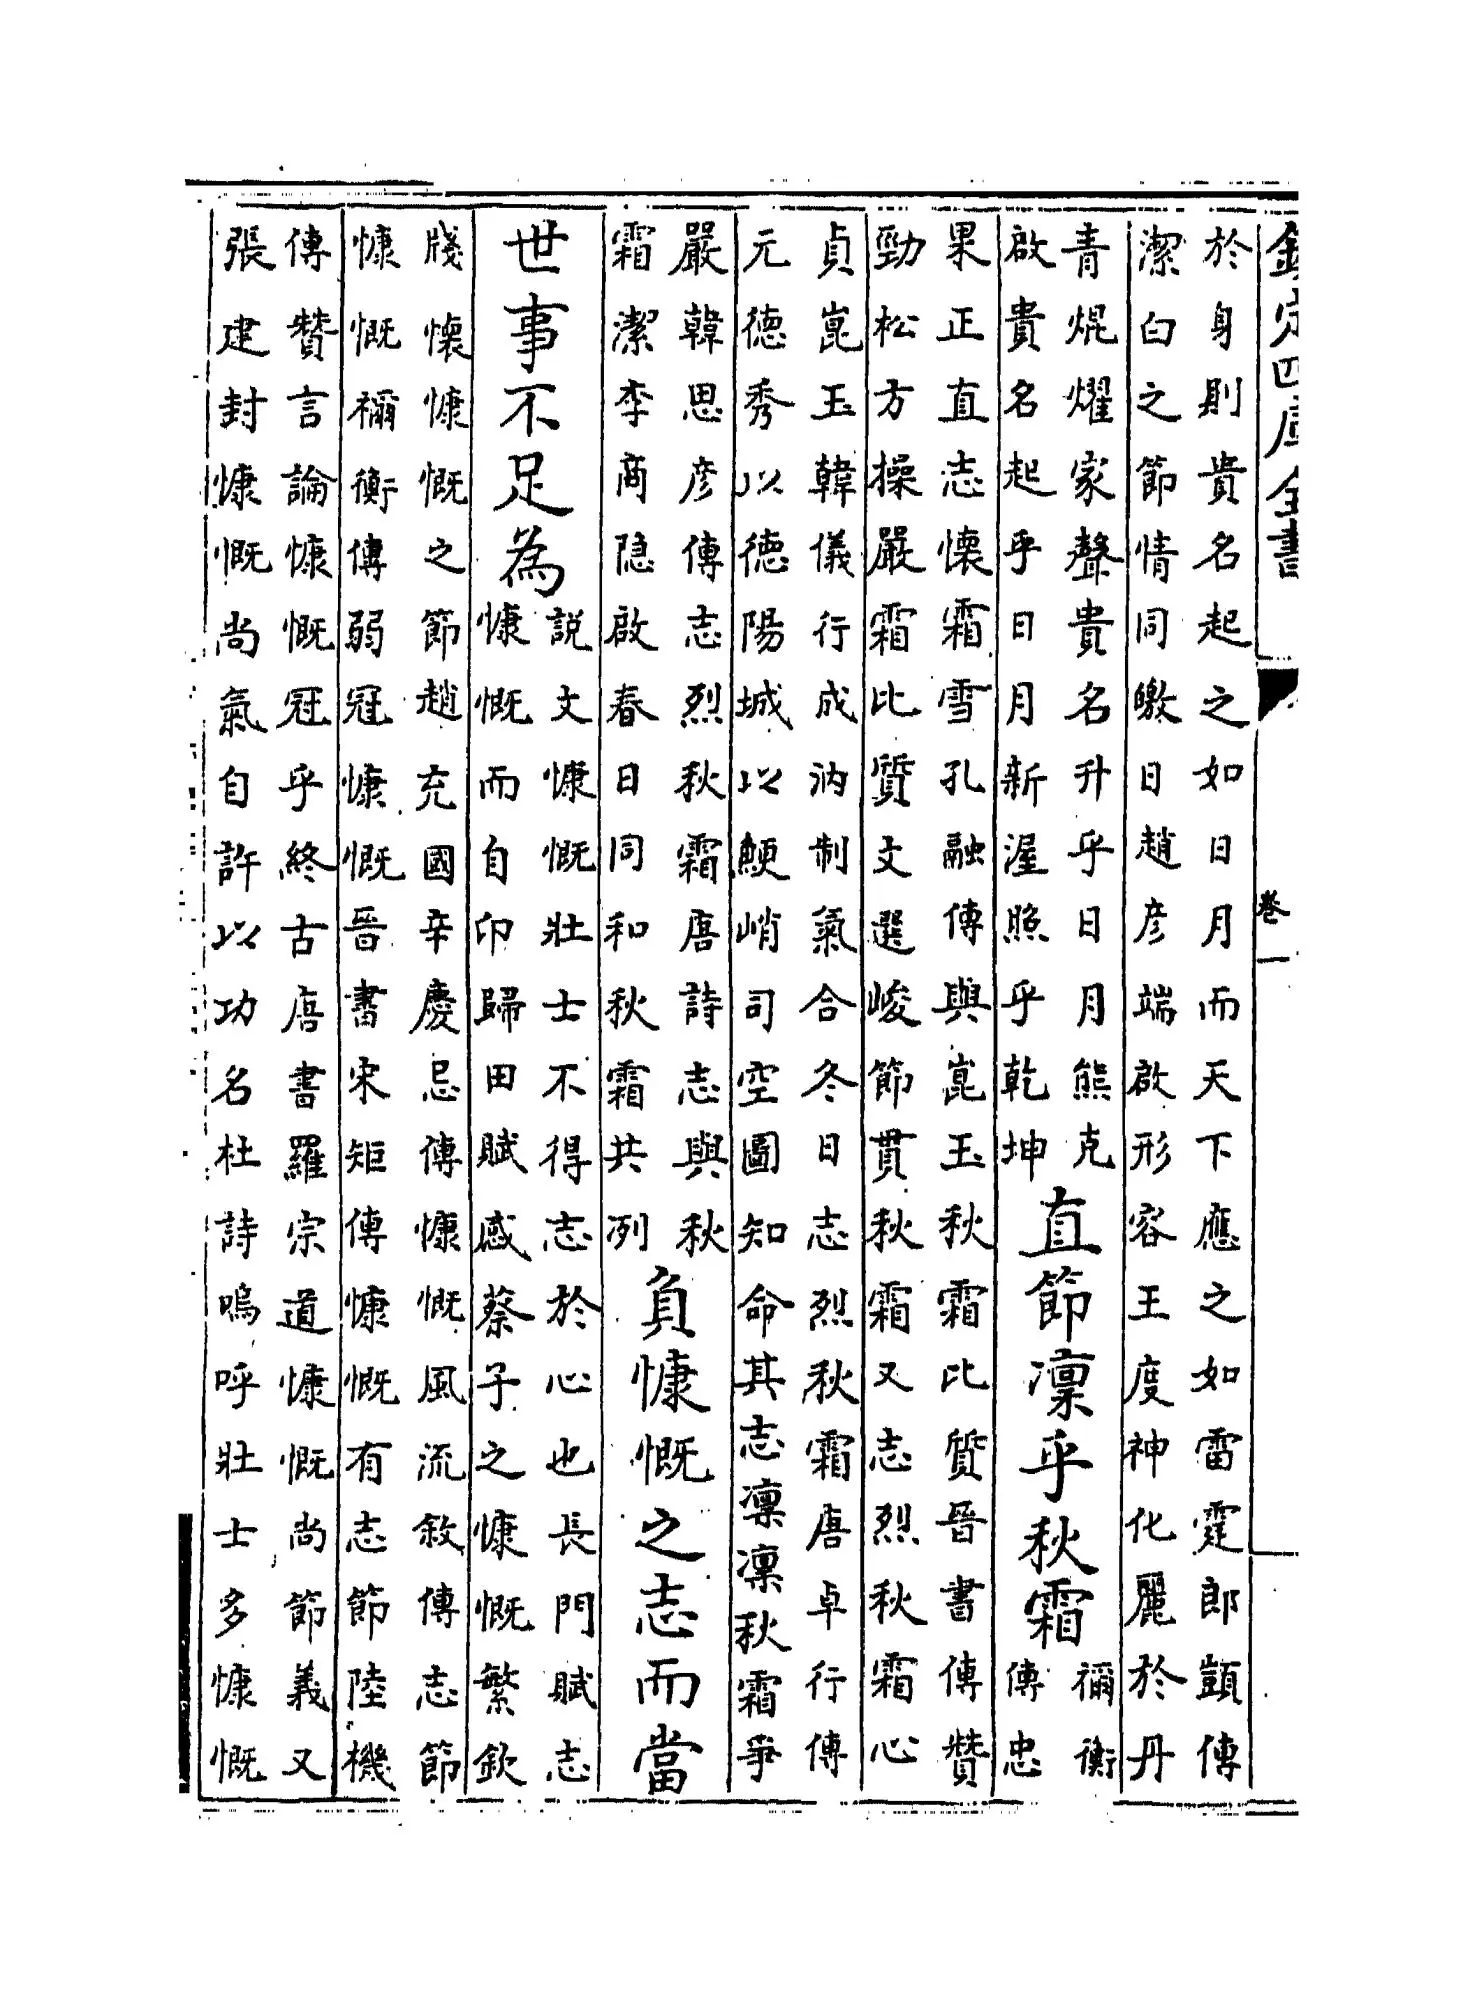 欽定四庫全書
卷一
於身則貴名起之如日月而天下應之如雷霆郎顗傳
潔白之節情同皦日趙彦端啟形容王度神化麗於丹
青焜燿家聲貴名升乎日月熊克
啟貴名起乎日月新渥照乎乾坤
直節凛乎秋霜
禰衡
傳忠
果正直志懐霜雪孔融傳與崑玉秋霜比質晉書傳贊
勁松方操嚴霜比質文選峻節貫秋霜又志烈秋霜心
貞崑玉韓儀行成汭制氣合冬日志烈秋霜唐卓行傳
元德秀以德陽城以鯁峭司空圖知命其志凛凛秋霜爭
嚴韓思彦傳志烈秋霜唐詩志與秋
霜潔李商隐啟春日同和秋霜共冽
負慷慨之志而當
世事不足為
説文慷慨壯士不得志於心也長門賦志
慷慨而自卬歸田賦感蔡子之慷慨繁欽
牋懐慷慨之節趙充國辛慶忌傳慷慨風流敘傳志節
慷慨禰衡傳弱冠慷慨晉書宋矩傳慷慨有志節陸機
傳贊言論慷慨冠乎終古唐書羅宗道慷慨尚節義又
張建封慷慨尚氣自許以功名杜詩嗚呼壯士多慷慨